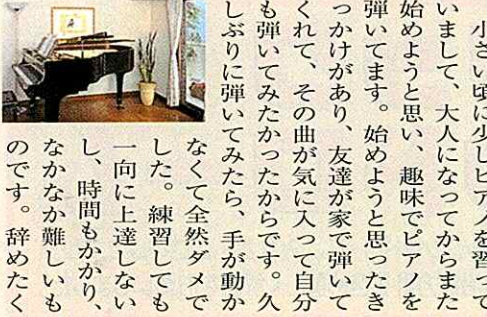 小さい頃に少しピアノを習って
いまして、大人になってからまた
始めようと思い、趣味でピアノを
弾いてます。始めようと思ったき
っかけがあり、友達が家で弾いて
くれて、その曲が気に入って自分
も弾いてみたかったからです。久
しぶりに弾いてみたら、手が動か
なくて全然ダメで
した。練習しても
一向に上達しない
し、時間もかかり、
なかなか難しいも
のです。辞めたく